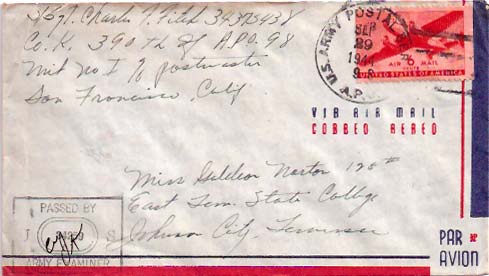 S/Sgt. Charles T. 34373438
Co. K, 390th Inf A.P.O. 98
Unit No I % postmaster
San Francisco, Calif
U.S. ARMY POSTAL
SEP
29
1944
A.P.
AIR 6¢ MAIL
UNITED STATES OF AMERICA
VIA AIR MAIL
CORREO AEREO
Miss Norton
East Tenn. State College
Johnson City, Tennessee
PASSED BY
ARMY EXAMINER
PAR
AVION